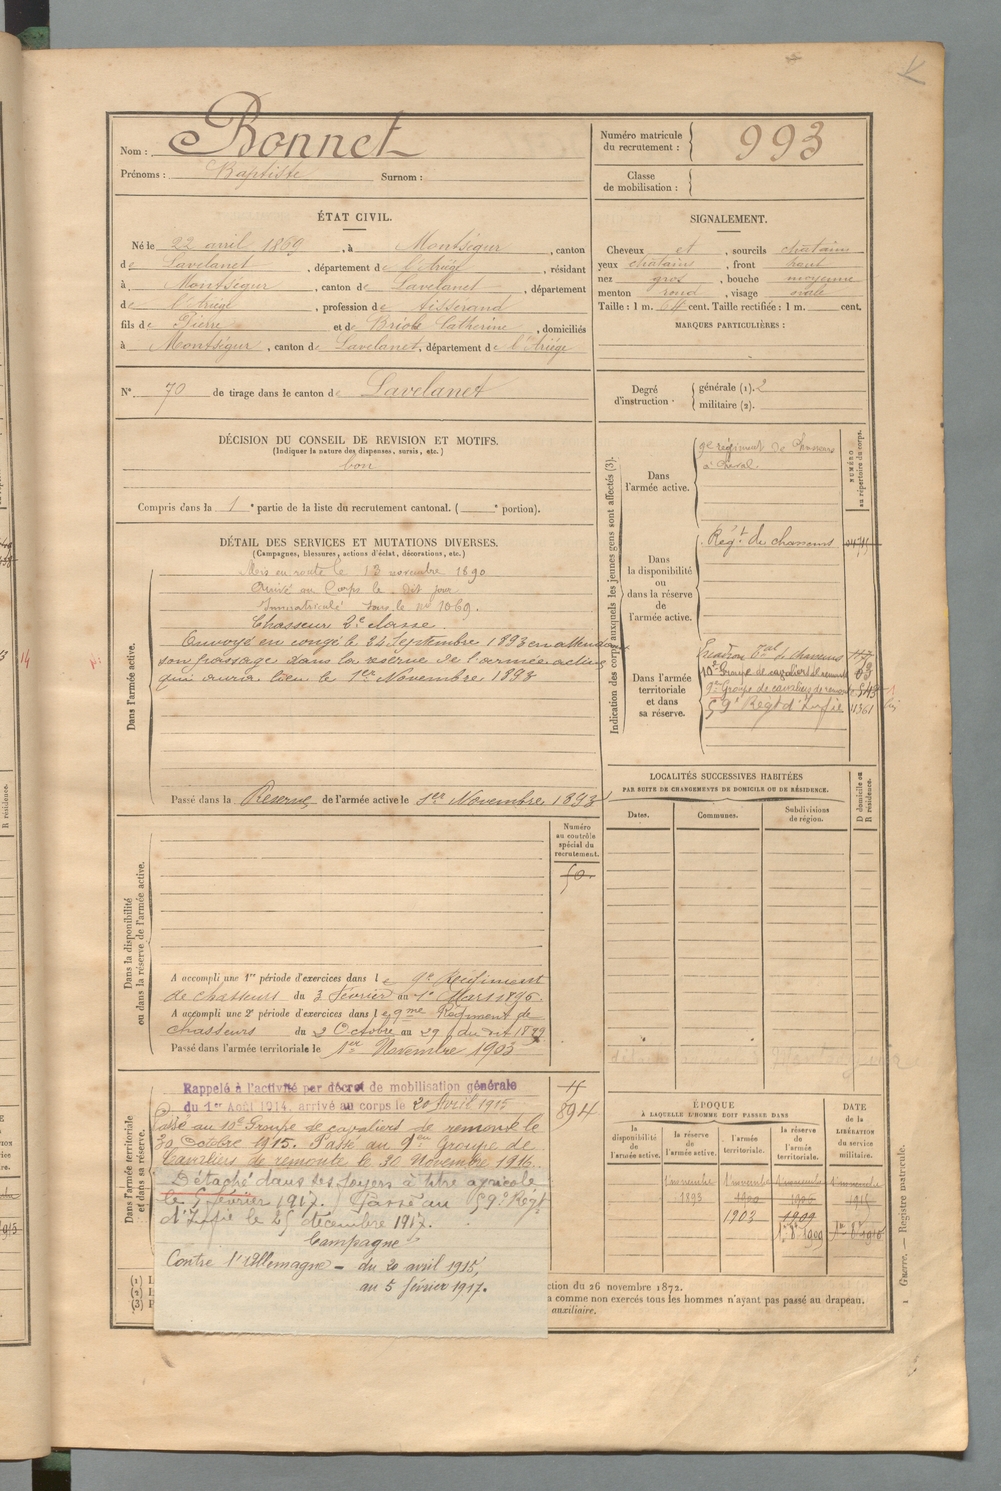 Nom : Bonnet
Prénoms : Baptiste Surnom :
Numéro matricule du recrutement : 993
Classe de mobilisation :
ÉTAT CIVIL.
Né le 22 avril 1869, à Montségur, canton
de Lavelanet, département de l'Ariège, résidant
à Montségur, canton de Lavelanet, département
de l'Ariège, profession de tisserand
fils de Pierre et de Catherine, domiciliés
à Montségur, canton de Lavelanet, département de l'Ariège
SIGNALEMENT.
Cheveux et, sourcils châtains
yeux châtains, front haut
nez gros, bouche moyenne
menton rond, visage ovale
Taille : 1 m. 64 cent. Taille rectifiée : 1 m. cent.
MARQUES PARTICULIÈRES :
N° 70 de tirage dans le canton de Lavelanet
Degré d'instruction. générale (1). 2
militaire (2).
DÉCISION DU CONSEIL DE REVISION ET MOTIFS.
(Indiquer la nature des dispenses, sursis, etc.)
bon
Compris dans la 1e partie de la liste du recrutement cantonal. ( e portion).
DÉTAIL DES SERVICES ET MUTATIONS DIVERSES.
(Campagnes, blessures, actions d'éclat, décorations, etc.)
Dans l'armée active.
Mis en route le 13 novembre 1890
Arrivé au Corps le dit jour
Immatriculé sous le n° 2069.
Chasseur 2e classe
Envoyé en congé le 24 Septembre 1893 en attendant
son passage dans la réserve de l'armée active
qui aura lieu le 1er Novembre 1893
Passé dans la Réserve de l'armée active le 1er Novembre 1893
Indication des corps auxquels les jeunes gens sont affectés (3).
NUMÉRO au répertoire du corps.
Dans l'armée active.
9e régiment de Chasseurs
à Cheval
Dans la disponibilité ou dans la réserve de l'armée active.
Régt de chasseurs
Dans l'armée territoriale et dans sa réserve.
Escadron de chasseurs
10e Groupe de cavaliers de remonte 63
9e Groupe de cavaliers de remonte 543
59e Régt d'Inf 11361
LOCALITÉS SUCCESSIVES HABITÉES
PAR SUITE DE CHANGEMENTS DE DOMICILE OU DE RÉSIDENCE.
Dates. Communes. Subdivisions de région. D domicile ou R résidence.
Dans la disponibilité ou dans la réserve de l'armée active.
Numéro au contrôle spécial du recrutement.
50
A accompli une 1re période d'exercices dans le 9e Régiment
de chasseurs du 3 février au 1er Mars 1896.
A accompli une 2e période d'exercices dans le 9me Régiment de
chasseurs du 2 Octobre au 29 du dit 1899
Passé dans l'armée territoriale le 1er Novembre 1903
Dans l'armée territoriale et dans sa réserve.
894
Rappelé à l'activité par décret de mobilisation générale
du 1er Août 1914, arrivé au corps le 20 Avril 1915
Passé au 10e Groupe de cavaliers de remonte le
30 Octobre 1915. Passé au 9e Groupe de
Cavaliers de remonte le 30 Novembre 1916.
Détaché dans ses foyers à titre agricole
le 5 février 1917. Passé au 59e Régt
d'Infie le 25 décembre 1917.
Campagne
Contre l'Allemagne — du 20 avril 1915,
au 5 février 1917.
ÉPOQUE
À LAQUELLE L'HOMME DOIT PASSER DANS
la disponibilité de l'armée active. la réserve de l'armée active. l'armée territoriale. la réserve de l'armée territoriale.
DATE de la LIBÉRATION du service militaire.
1 novembre 1 novembre 1 novembre 1 novembre
1893 1900 1906 1915
1903 1909
1er 8bre 1909 1er 8bre 1916
(1)
(2)
(3)
ction du 26 novembre 1872.
a comme non exercés tous les hommes n'ayant pas passé au drapeau.
auxiliaire.
Guerre. — Registre matricule.